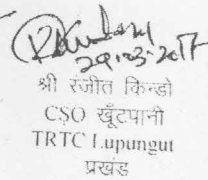 29-03-2017
श्री रंजीत किन्डो
CSO खूँटपानी
TRTC Lupungut
प्रखंड